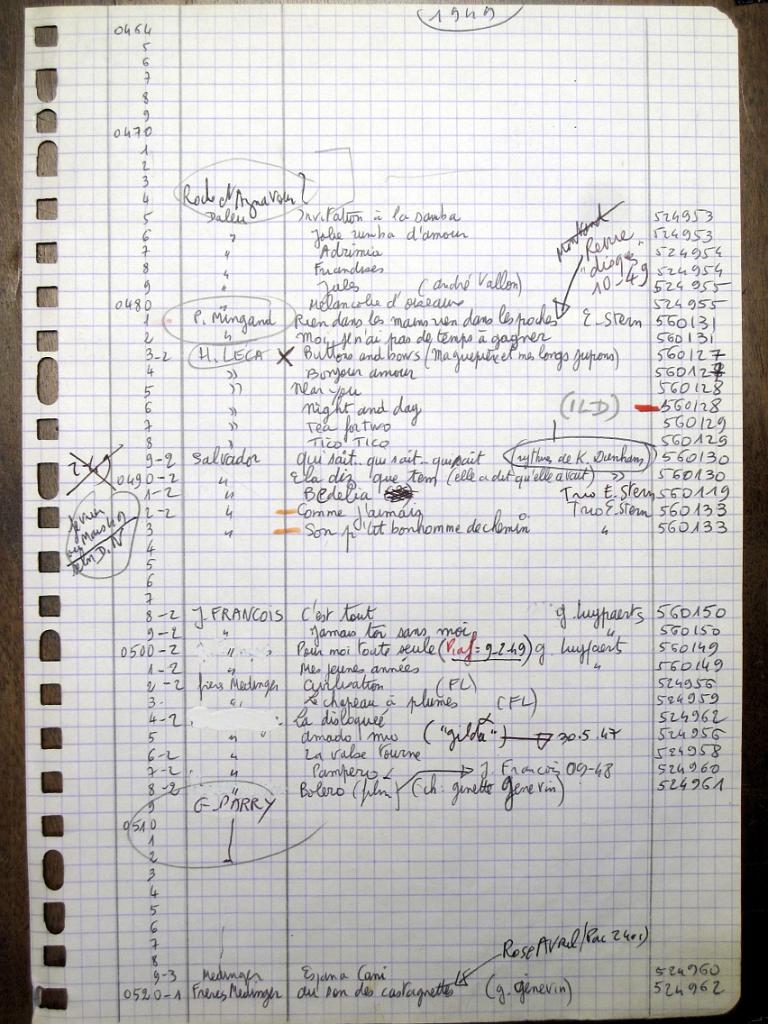 1949
0464
5
6
7
8
9
0470
1
2
3
4 Roche d'Aznavour ?
5 Dalen Invitation à la samba 524953
6 " Jolie rumba d'amour 524953
7 " Adrimia 524954
8 " Friandises 524954
9 " Jules (andré Vallon) 524955
0480 " Mélancolie d'oiseaux 524955
Revue "disques" 10-49
1 P. Mingand Rien dans les mains rien dans les poches E. Stern 560131
2 " Moi, je n'ai pas de temps à gagner 560131
3-2 H. LECA X Buttons and bows (Ma guêpière et mes longs jupons) 560127
4 " Bonjour amour 560127
5 " Near you 560128
6 " Night and day (ILD) 560128
7 " Tea for two 560129
8 " Tico Tico 560129
9-2 Salvador qui sait.. qui sait.. qui sait (rythmes de K. Dunham) 560130
2-49
0490-2 " E la diz que tem (elle a dit qu'elle avait) " 560130
1-2 " Bedelia Trio E. Stern 560119
février ou Mars 49 selon D.N
2-2 " Comme j'aimais Trio E. Stern 560133
3 " Son p'tit bonhomme de chemin " 560133
4
5
6
7
8-2 J. FRANCOIS C'est tout g. luypaerts 560150
9-2 " Jamais toi sans moi " 560150
0500-2 " Pour moi toute seule (Piaf = 9-2-49) g. luypaert 560149
1-2 " Mes jeunes années " 560149
2-2 frères Medinger Civilisation (FL) 524956
3- " Le chapeau à plumes (FL) 524959
4-2 La disloquée 524962
5 " " amado mio ("gilda") 30.5.47 524956
6-2 " La valse tourne 524958
7-2 " Pampero J. François 09-48 524960
8-2 " Bolero (ch: ginette genevin) 524961
9 G. PARRY
0510
1
2
3
4
5
6
7
8
Rose AVRIL/Pac 2401
9-3 Medinger Espana Cani 524960
0520-1 Frères Medinger au son des castagnettes (g. génevin) 524962